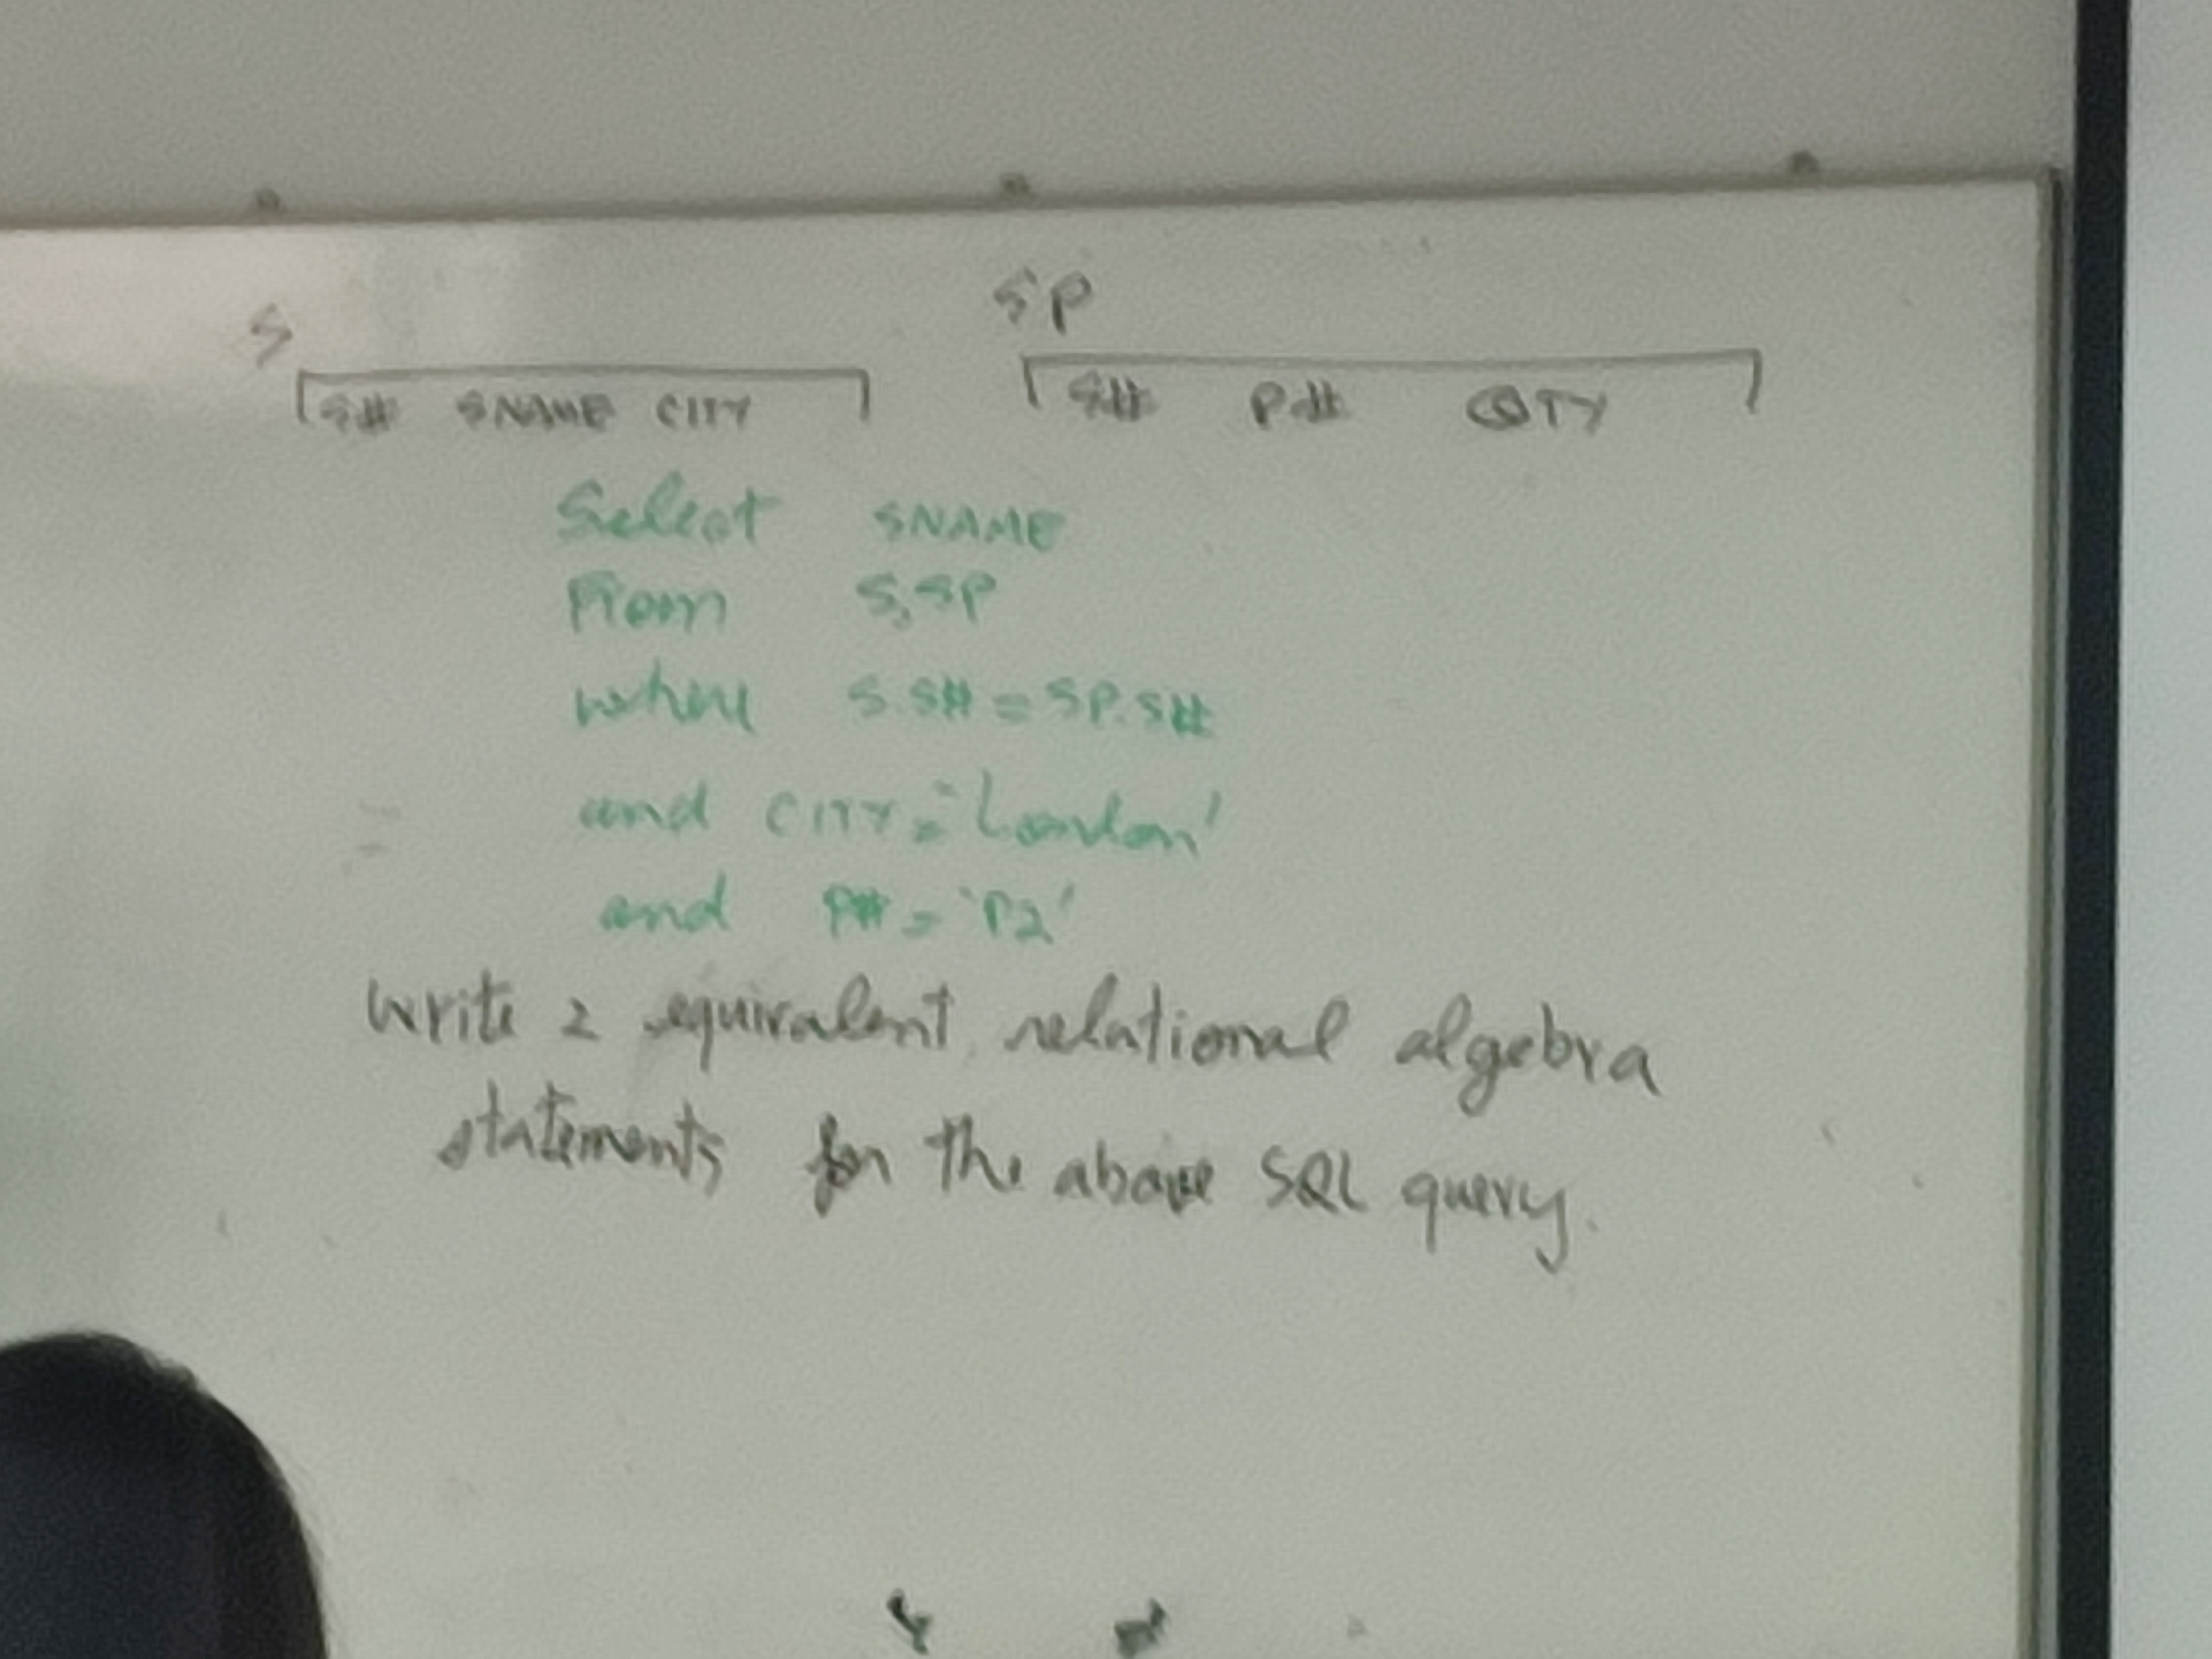 S
SP
S# SNAME CITY
S# P# QTY
Select SNAME
From S,SP
where S.S# = SP.S#
and CITY = 'London'
and P# = 'P2'
Write 2 equivalent relational algebra
statements for the above SQL query.